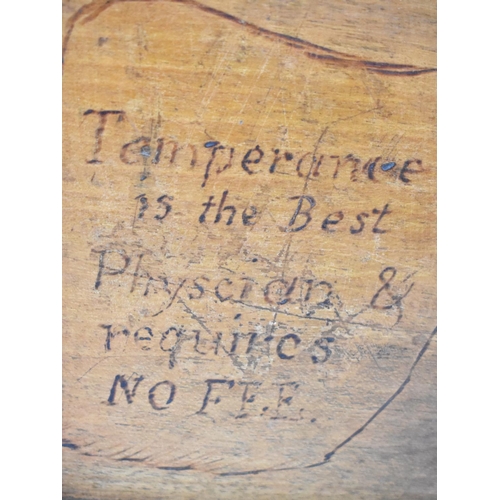 Temperance
is the Best
Physcian &
requires
NO FEE.